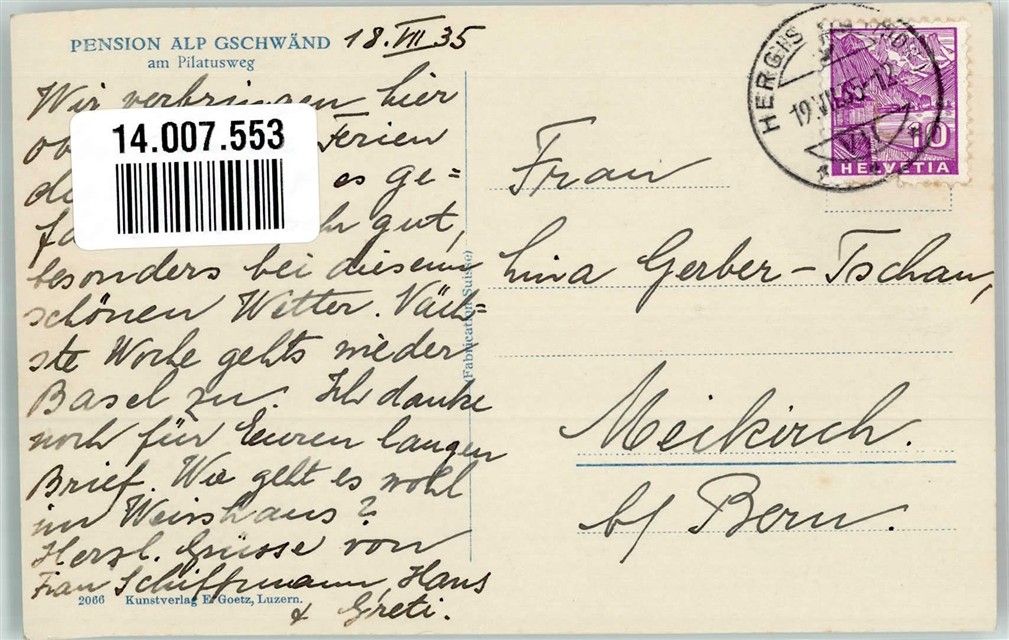 PENSION ALP GSCHWÄND
am Pilatusweg
18.VII 35
Wir verbringen hier
Ferien
es ge=
gut,
besonders bei diesem
schönen Wetter. Näch-
ste Woche gehts wieder
Basel zu. Ich danke
noch für Euren langen
Brief. Wie geht es wohl
im
Herzl. Grüsse von
Frau Schiffmann, Hans
& Greti.
2066 Kunstverlag E. Goetz, Luzern.
14.007.553
(Fabrication Suisse)
HERGIS
19.VII.35-12
10
HELVETIA
Frau
Lina Gerber-Tschan,
Meikirch.
b/ Bern.